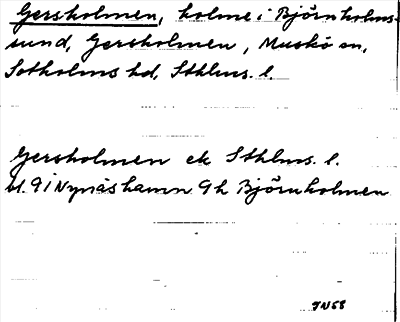 Gersholmen, holme i Björnholms-
sund, Gersholmen, Muskö sn,
Sotholms hd, Sthlms. l.
Gersholmen ek Sthlms. l.
bl. 9 i Nynäshamn 9 h Björnholmen
JN68